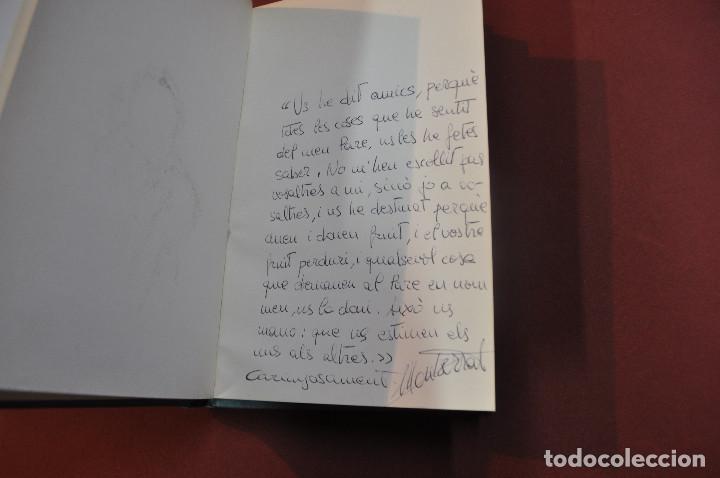 "Us he dit amics, perquè
totes les coses que he sentit
del meu Pare, us les he fetes
saber. No m'heu escollit pas
vosaltres a mi, sinó jo a vo-
saltres, i us he destinat perquè
aneu i doneu fruit, i el vostre
fruit perduri, i qualsevol cosa
que demaneu al Pare en nom
meu, us la doni. Això us
mano: que us estimeu els
uns als altres.>>
Carinyosament. Montserrat
todocoleccion.net